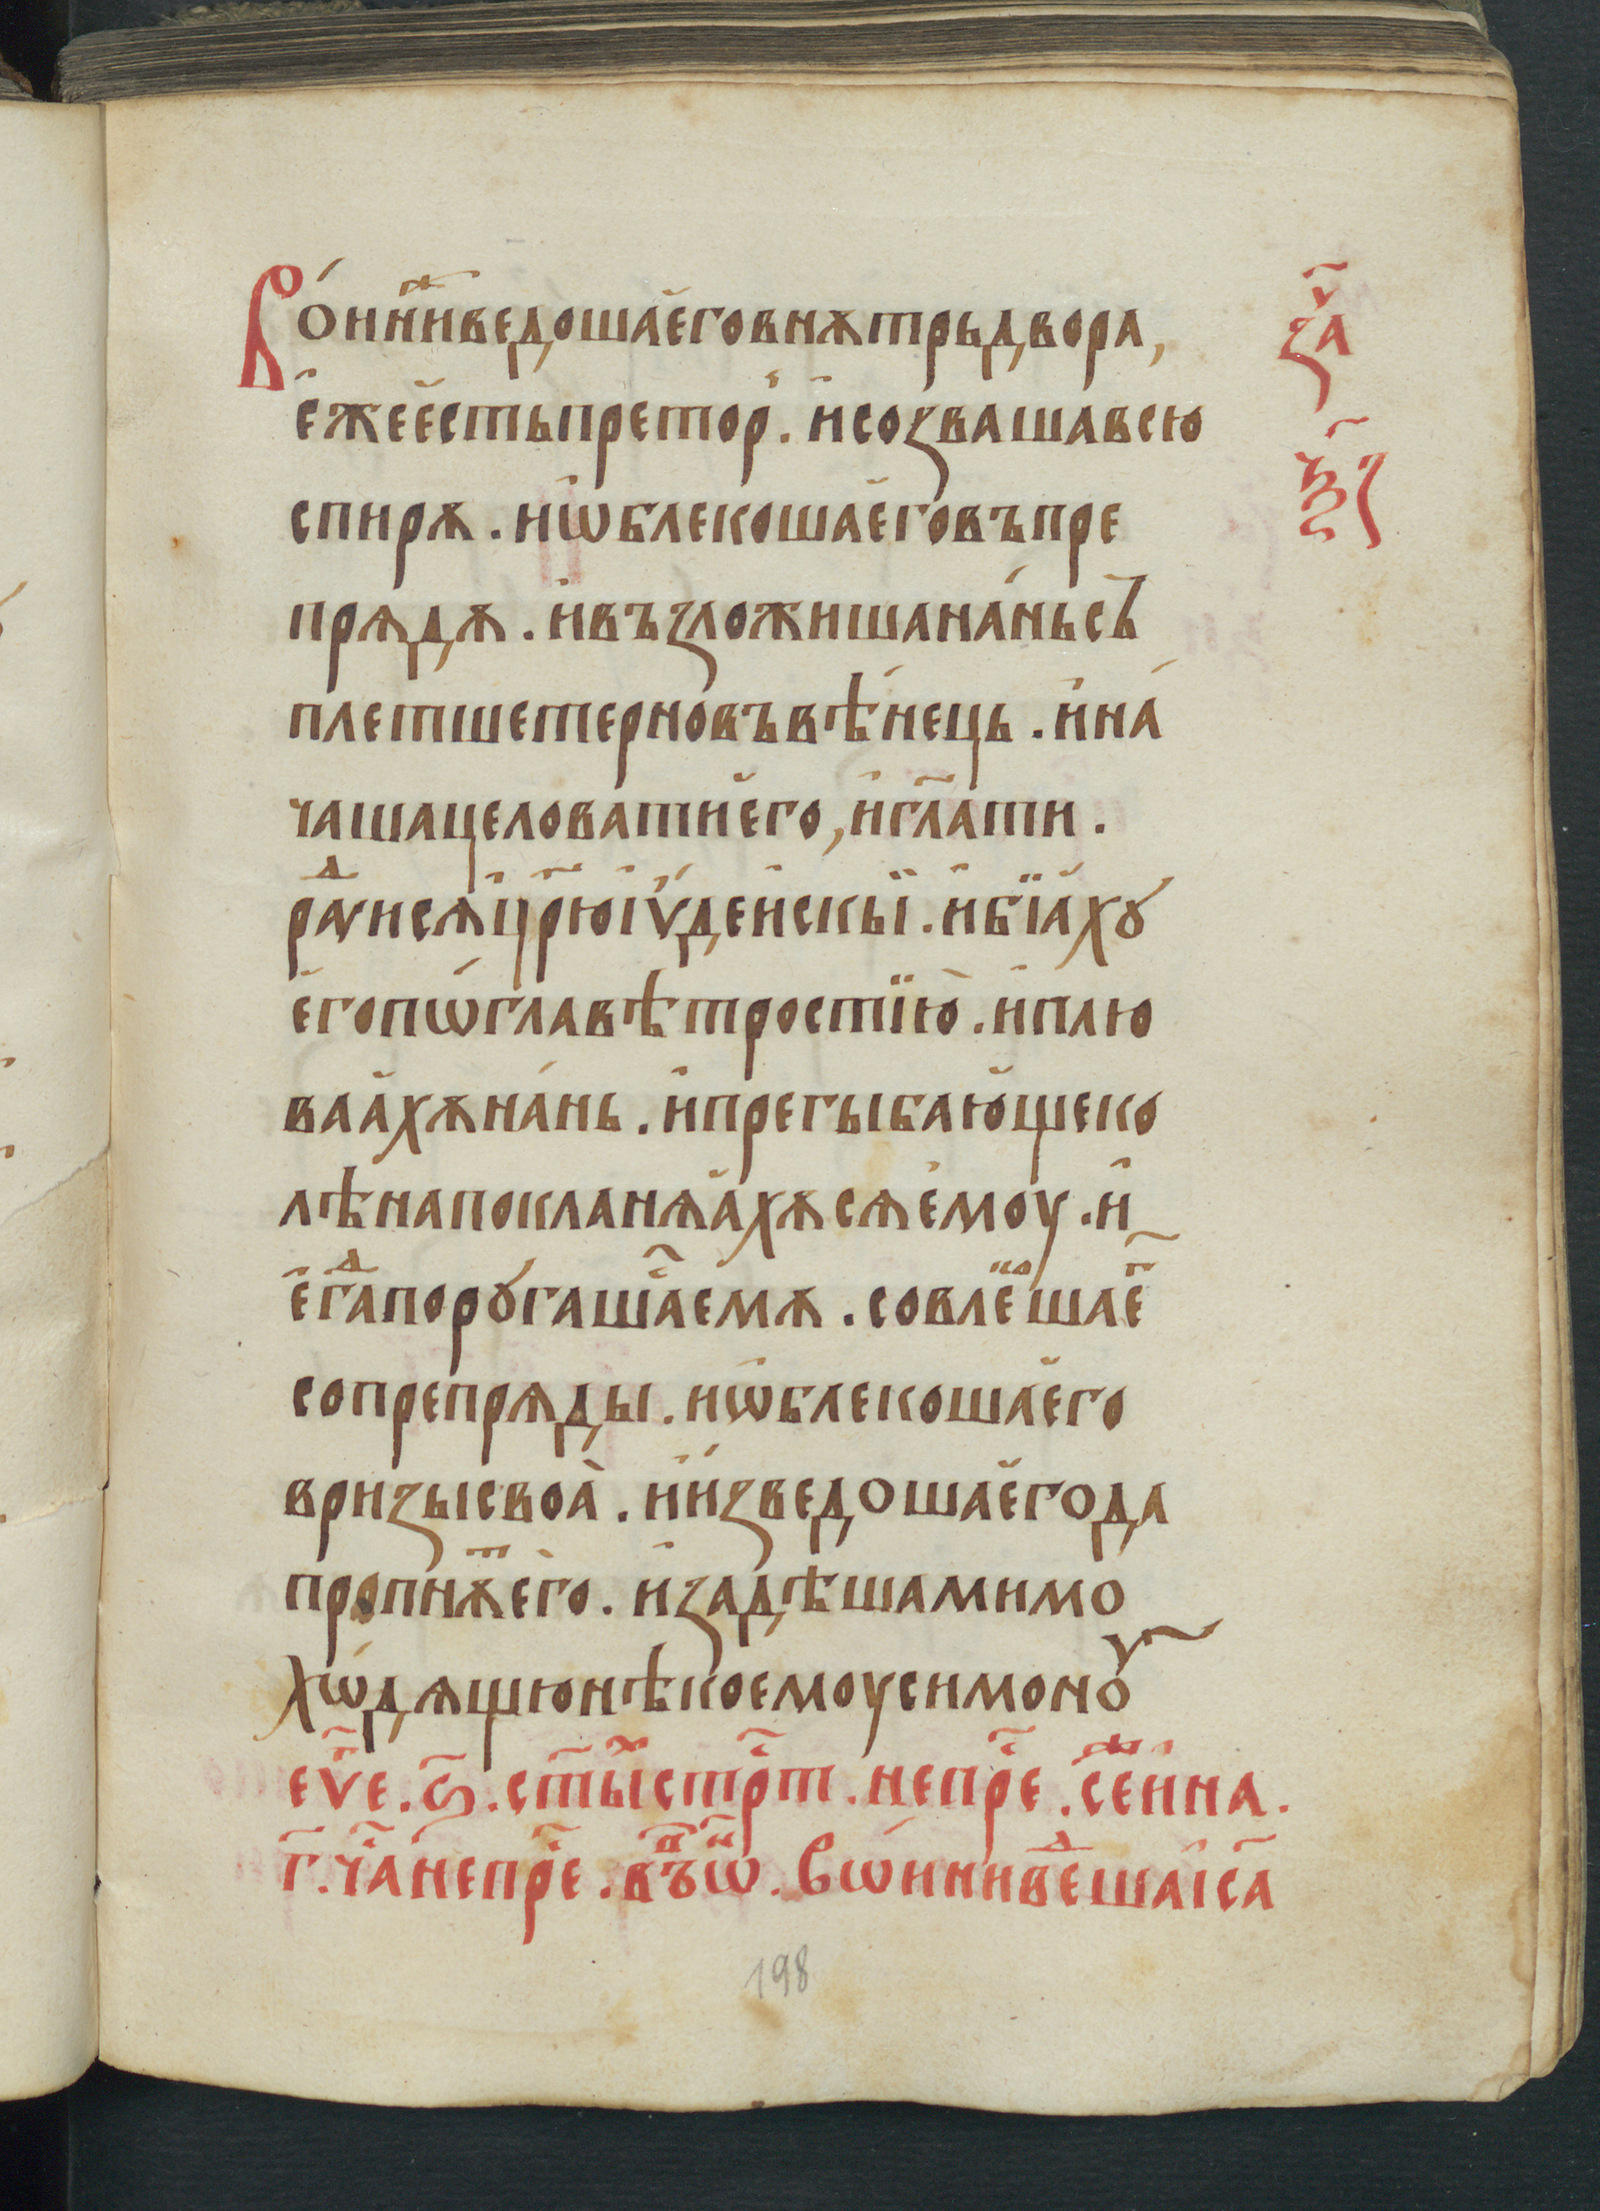 Во́инижⷤеведошаегов нѫтрьдвора,
за҃
ежеестьпретор. исозвашавсю
ѯ҃з
спирѫ. иѡблекошаеговъпре
прѧдѫ. ивъзложишана́ньсъ
плетшетерновъвѣ́нець. ина́
чашацеловатиего, игл҃ати.
раⷣуисѧцр҃юіѵ́деискыї. ибїахꙋ
егопѡ́главѣтростїю. иплю
ваахѫна́нь. ипрегыбающеко
лѣнапокланѧахѫсѧемоу. и
егⷣапорꙋгашаⷭ҇емѫ. совлеⷦ҇шаеⷢ҇
сопрепрѧды. иѡблекошаего
вризысвоа. иизведошаегода
пропнѫⷮего. изадѣшамимо
хѡ́дѧщюнѣкоемоусимонꙋ
еѵⷢ҇е. ѕ҃. ст҃ыⷯстрⷭ҇т. непрⷭ҇е. сеⷤина.
г҃. чаⷭ҇непрⷭ҇е. въⷪ҇нѡ. вѡ́инивеⷣшаіс҃а
198